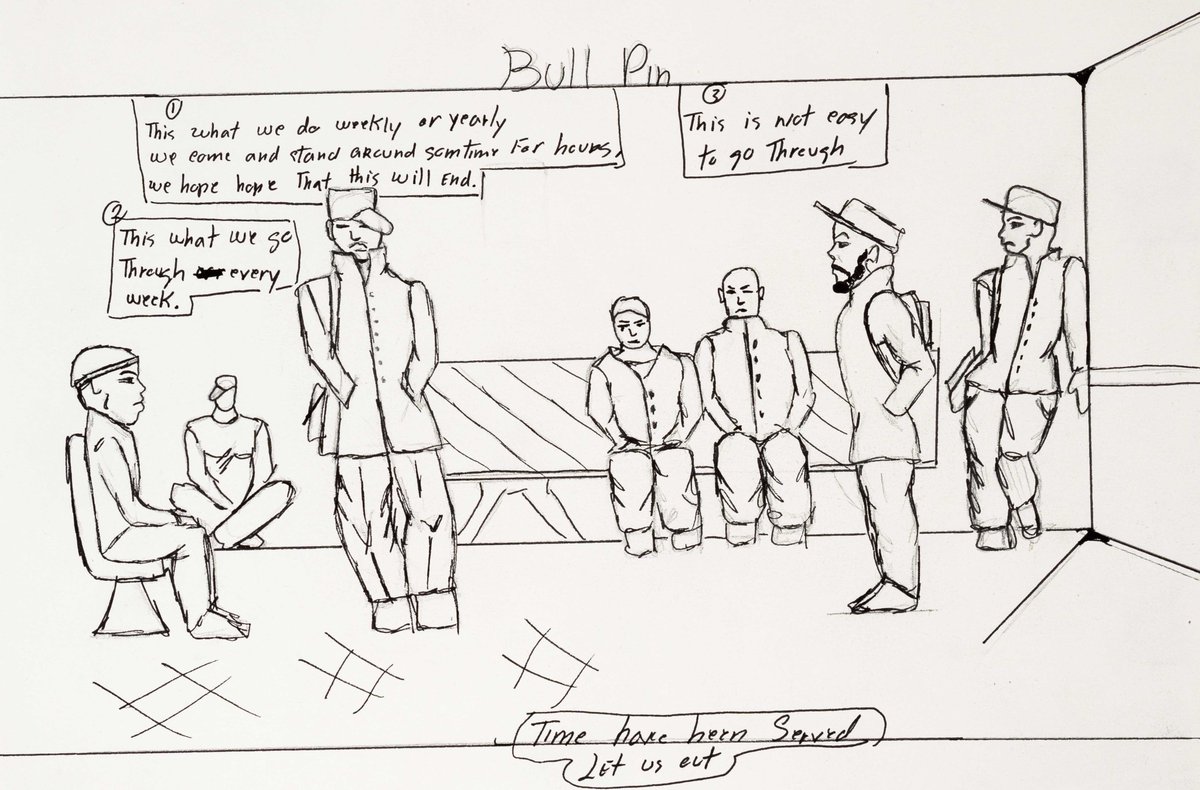 Bull Pin
①
This what we do weekly or yearly
we come and stand around somtime for hours,
we hope hope That this will End.
②
This what we go
Through every
week.
③
This is not easy
to go Through
Time have been Served
LET us out